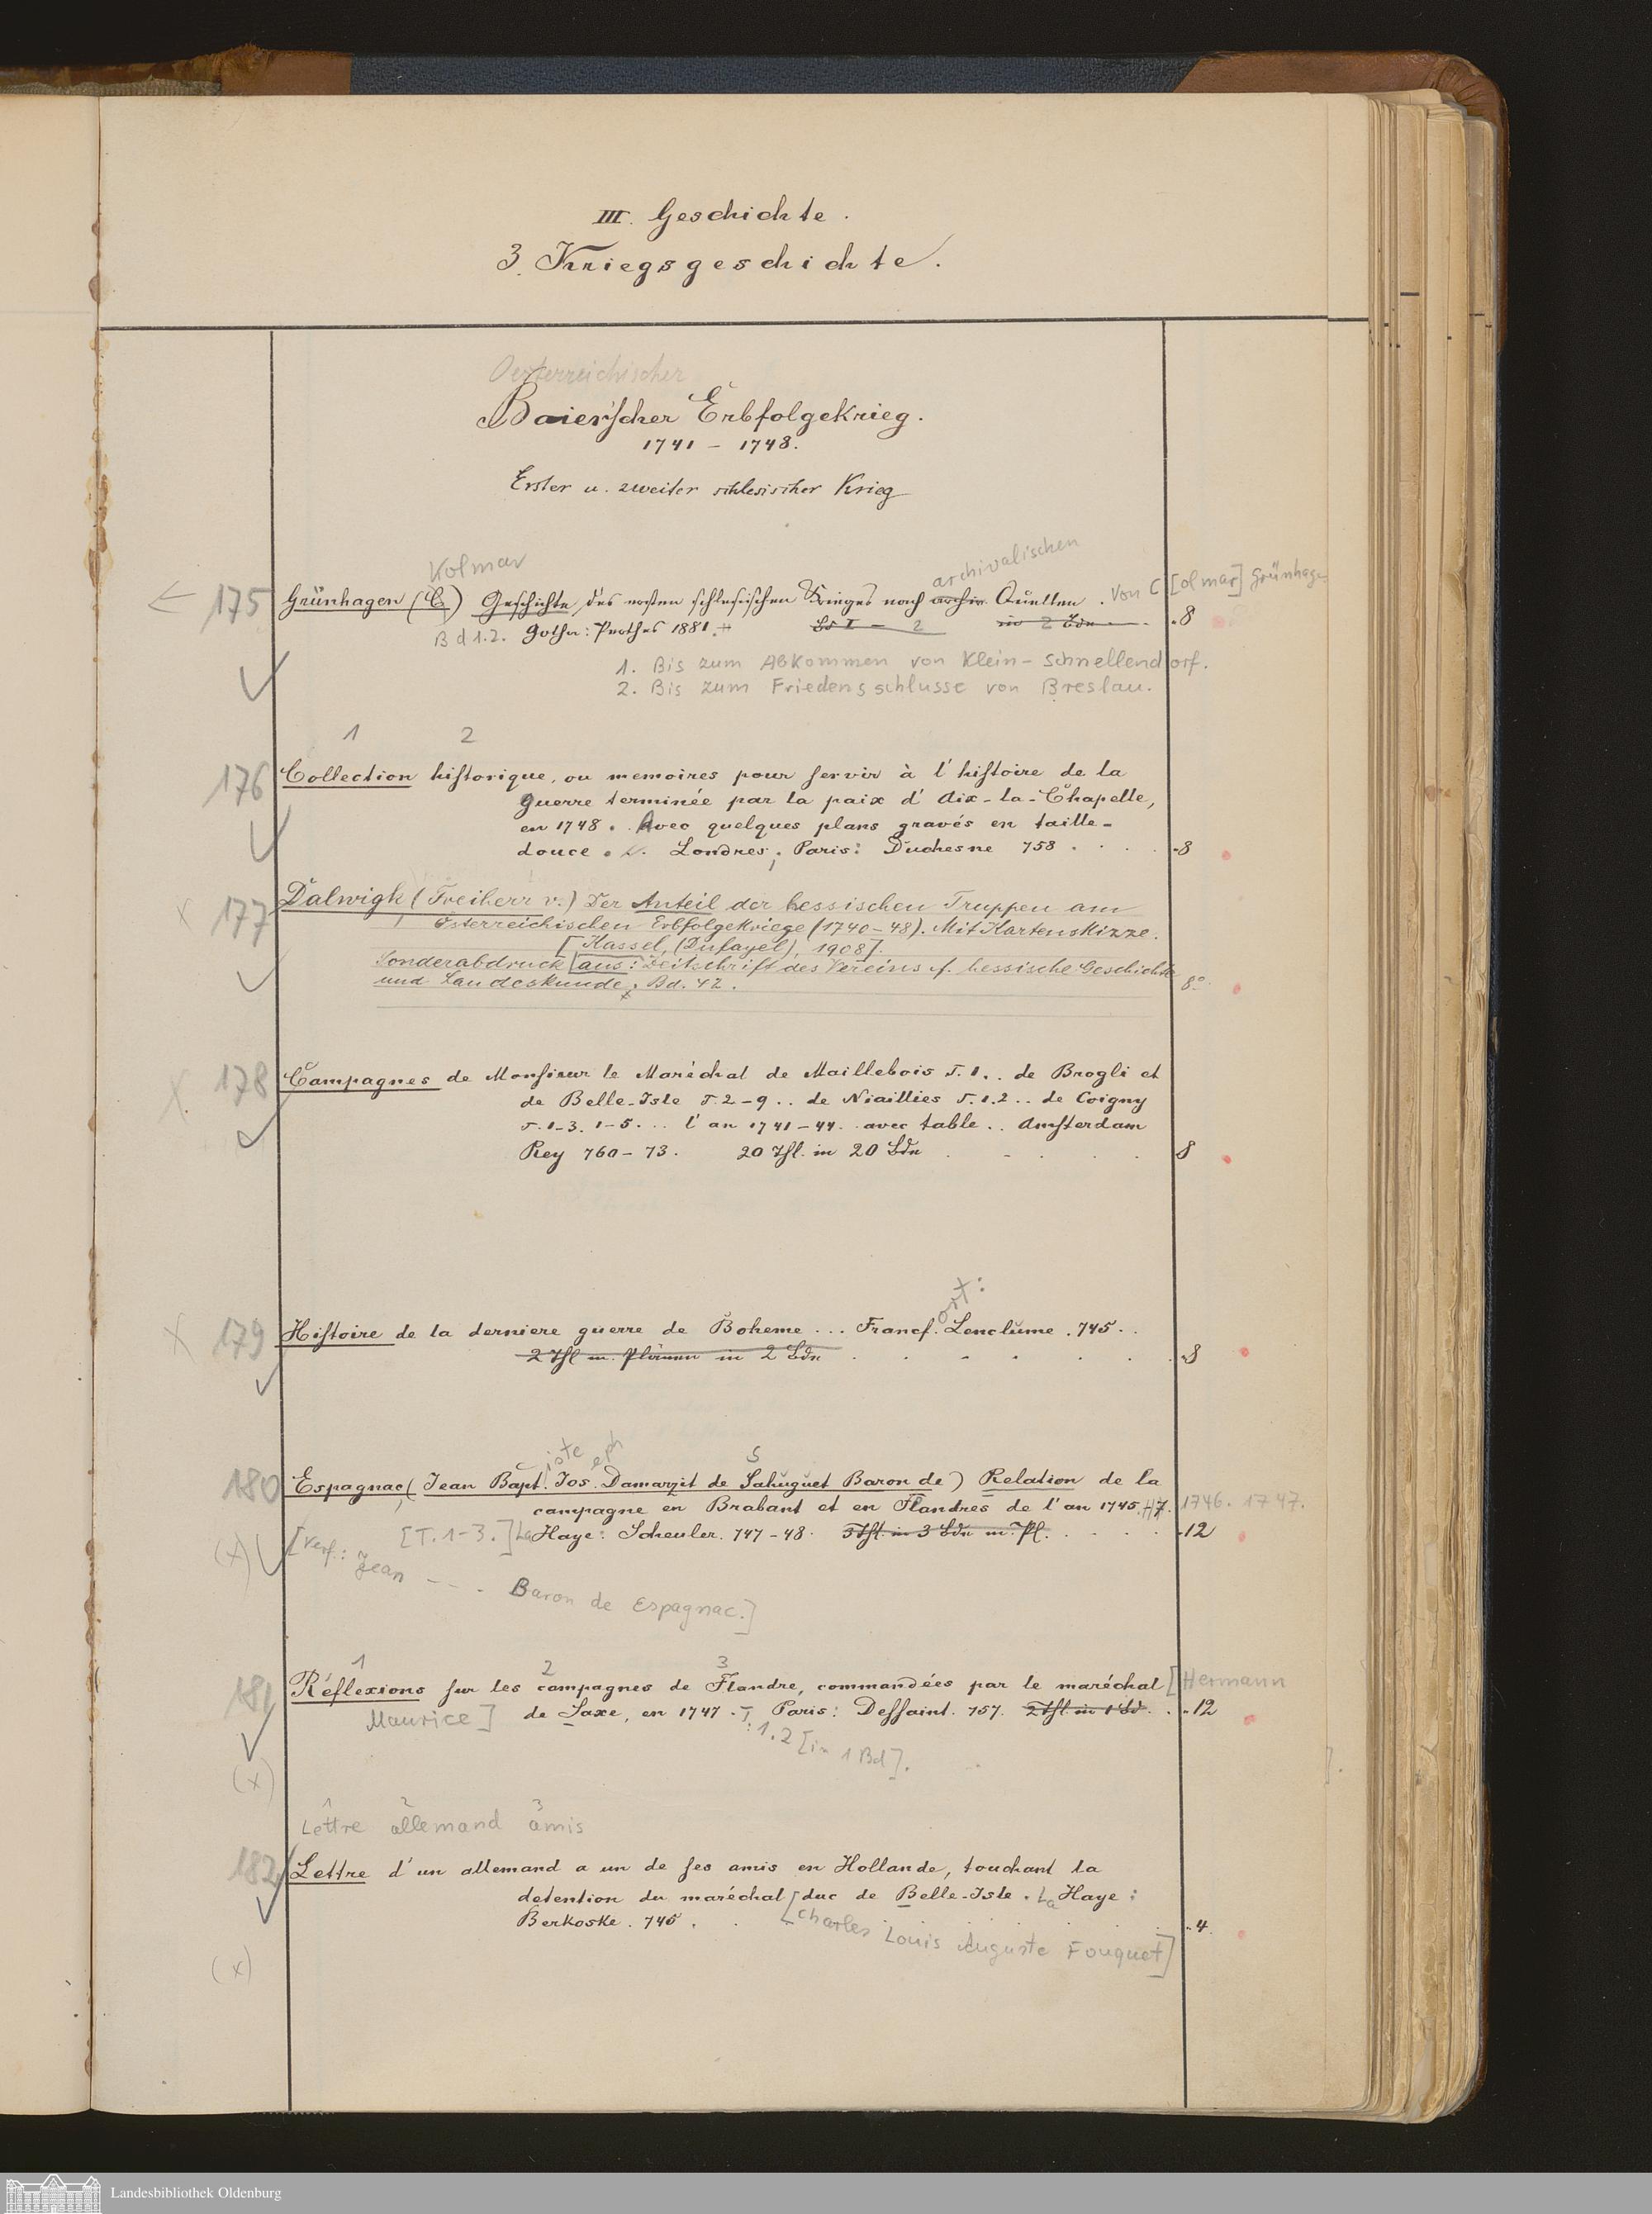 III. Geschichte.
3. Kriegsgeschichte.
Oesterreichischer
Baierscher Erbfolgekrieg.
1741 – 1748.
Erster u. zweiter schlesischer Krieg
Kolmar
archivalischen
175 Grünhagen (C.) Geschichte des ersten schlesischen Krieges nach archiv. Quellen. Von C[olmar] Grünhage
Bd 1.2. Gotha: Perthes 1881. Bd I – 2 in 2 Bdn . 8
1. Bis zum Abkommen von Klein-Schnellendorf.
2. Bis zum Friedensschlusse von Breslau.
1 2
176 Collection historique, ou memoires pour servir à l'histoire de la
guerre terminée par la paix d'Aix-la-Chapelle,
en 1748. Avec quelques plans gravés en taille-
douce. Londres; Paris: Duchesne 758 . . . 8
177 Dalwigk (Freiherr v.) Der Anteil der hessischen Truppen am
österreichischen Erbfolgekriege (1740–48). Mit Kartenskizze.
[Kassel, (Dufayel), 1908].
Sonderabdruck aus: Zeitschrift des Vereins f. hessische Geschichte
und Landeskunde, Bd. 42. 8°
178 Campagnes de Monsieur le Maréchal de Maillebois T. 1.. de Brogli et
de Belle-Isle T. 2–9.. de Niaillies T. 1.2.. de Coigny
T. 1–3. 1–5... l'an 1741–44.. avec table.. Amsterdam
Rey 760–73. 20 Thl. in 20 Bdn . . . . 8
ort:
179 Histoire de la derniere guerre de Boheme ... Francf. Lenclume. 745..
2 Thl m. Plänen in 2 Bdn . . . . . . 8
iste eph S
180 Espagnac (Jean Bapt. Jos. Damarzit de Sahuguet Baron de) Relation de la
campagne en Brabant et en Flandres de l'an 1745. 47. 1746. 1747.
[T. 1–3.] La Haye: Scheuler. 747–48. 3 Thl. in 3 Bdn m. Pl. . . . . 12
[Verf.: Jean – – – Baron de Espagnac.]
1 2 3
181 Réflexions sur les campagnes de Flandre, commandées par le maréchal [Hermann
Maurice] de Saxe, en 1747. T. Paris: Dessaint. 757. 2 Thl in 1 Bd. . . 12
: 1.2 [in 1 Bd].
1 2 3
Lettre allemand amis
182 Lettre d'un allemand a un de ses amis en Hollande, touchant la
detention du maréchal duc de Belle-Isle. La Haye:
Berkoske. 745. . . . . . 4.
[Charles Louis Auguste Fouquet]
Landesbibliothek Oldenburg